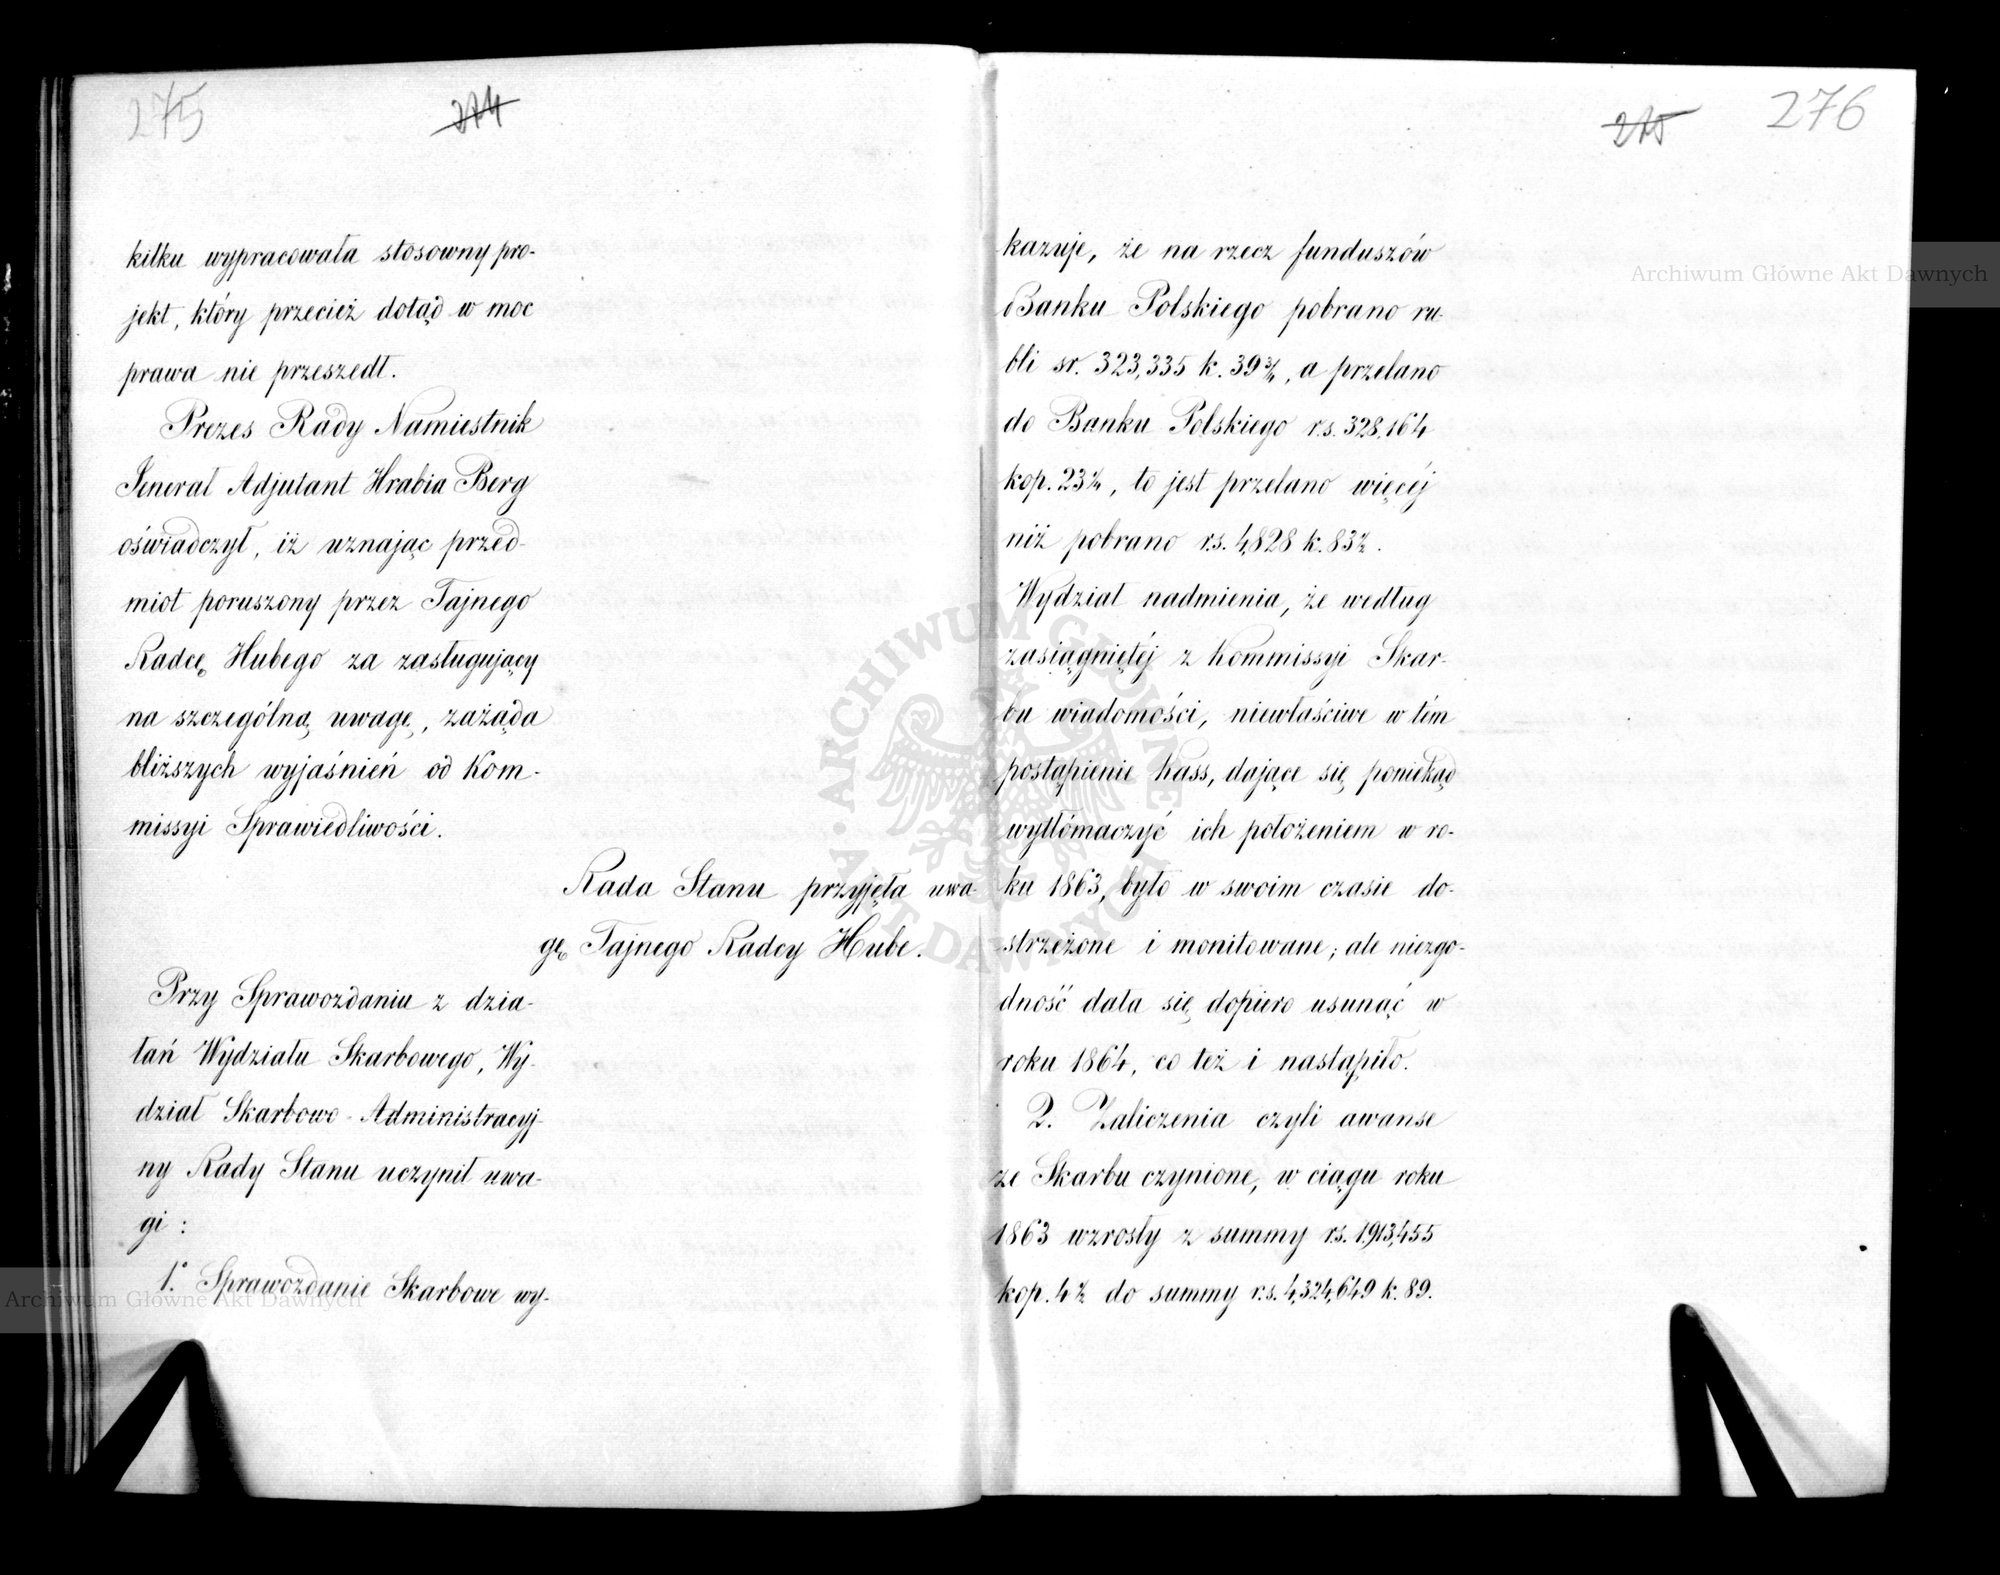 275
274
kilku wypracowała stosowny pro-
jekt, który przecież dotąd w moc
prawa nie przeszedł.
Prezes Rady Namiestnik
Jenerał Adjutant Hrabia Berg
oświadczył, iż uznając przed-
miot poruszony przez Tajnego
Radcę Hubego za zasługujący
na szczególną uwagę, zażąda
bliższych wyjaśnień od Kom-
missyi Sprawiedliwości.
Rada Stanu przyjęła uwa-
gę Tajnego Radcy Hube.
Przy Sprawozdaniu z dzia-
łań Wydziału Skarbowego, Wy-
dział Skarbowo-Administracyj-
ny Rady Stanu uczynił uwa-
gi:
1. Sprawozdanie Skarbowe wy-
275
276
kazuje, że na rzecz funduszów
Banku Polskiego pobrano ru-
bli sr. 323,335 k. 39¾, a przelano
do Banku Polskiego r.s. 328,164
kop. 23¼, to jest przelano więcéj
niż pobrano r.s. 4,828 k. 83½.
Wydział nadmienia, że według
zasiągniętéj z Kommissyi Skar-
bu wiadomości, niewłaściwe w tém
postąpienie kass, dające się poniekąd
wytłómaczyć ich położeniem w ro-
ku 1863, było w swoim czasie do-
strzeżone i monitowane; ale niezgo-
dność dała się dopiero usunąć w
roku 1864, co też i nastąpiło.
2. Zaliczenia czyli awanse
ze Skarbu czynione, w ciągu roku
1863 wzrosły z summy r.s. 1,913,455
kop. 4½ do summy r.s. 4,324,649 k. 89.
Archiwum Główne Akt Dawnych
Archiwum Główne Akt Dawnych
ARCHIWUM GŁÓWNE AKT DAWNYCH